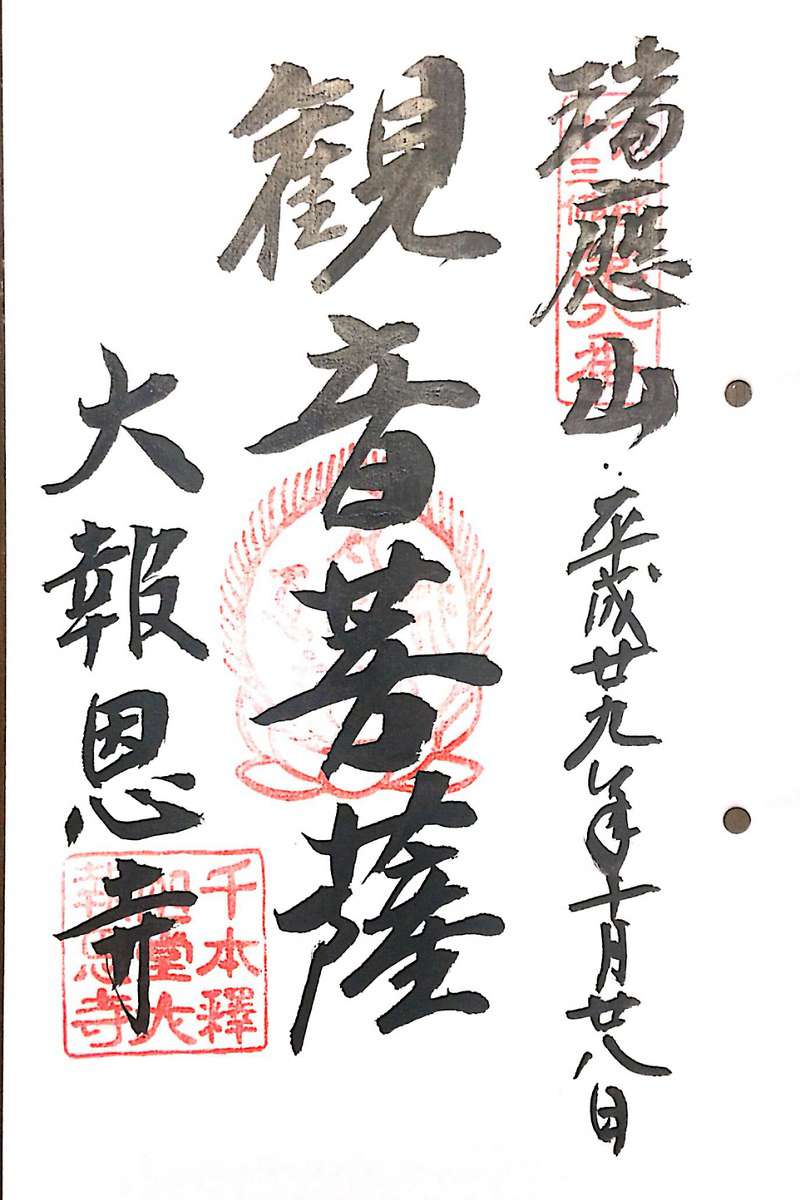 瑞應山
平成廿九年十月廿八日
観音菩薩
大報恩寺
千本釋
迦堂大
報恩寺